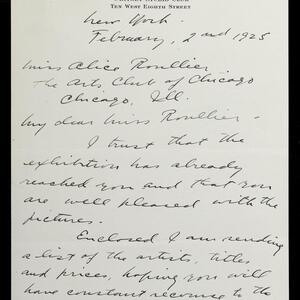 Ten West Eighth Street
New York.
February, 2nd 1925
Miss Alice Roullier
The Arts Club of Chicago
Chicago, Ill.
My dear Miss Roullier -
I trust that the
exhibition has already
reached you and that you
are well pleased with the
pictures.
Enclosed I am sending
a list of the artists, titles
and prices, hoping you will
have constant recourse to the